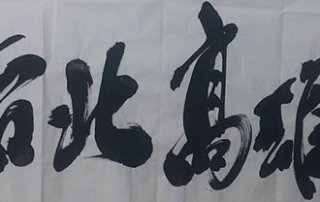 北高雄